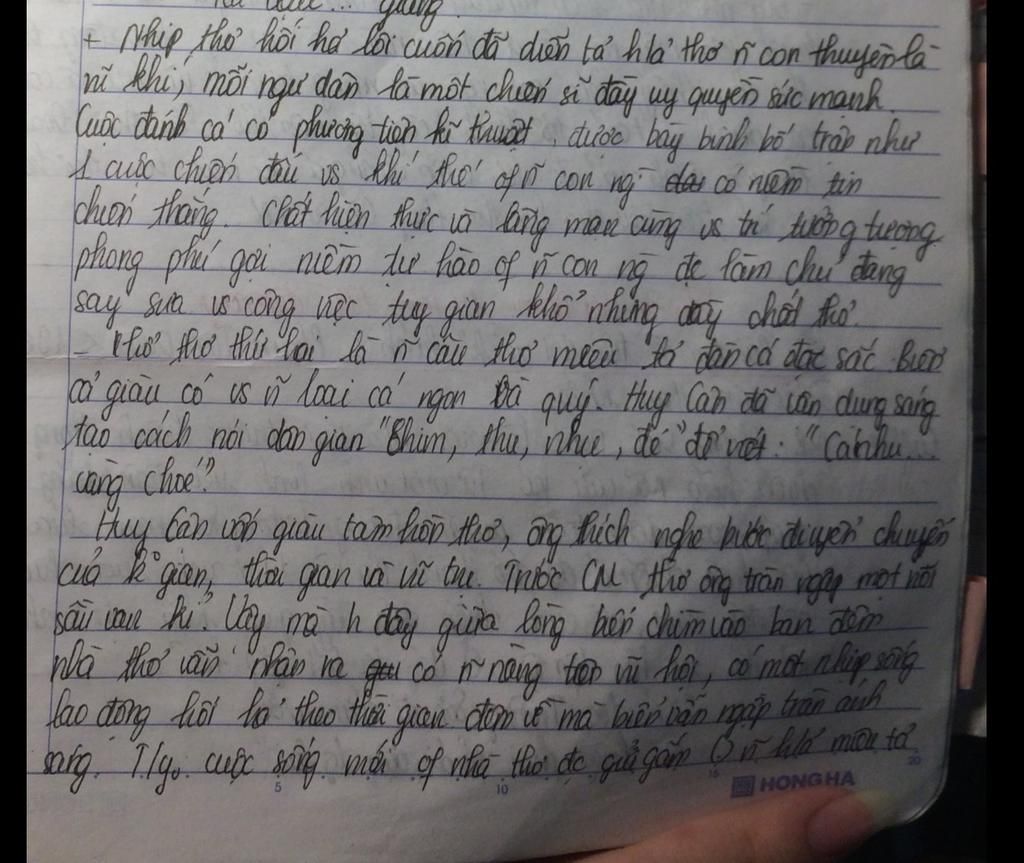 + Nhịp thở hối hả lôi cuốn đã diễn tả h/ả thơ ñ con thuyền là
vĩ khí, mỗi ngư dân là một chiến sĩ đầy uy quyền sức mạnh.
Cuộc đánh cá có phương tiện kĩ thuật, được bày binh bố trận như
1 cuộc chiến đấu vs khí thế of ñ con ng có niềm tin
chiến thắng. Chất hiện thực và lãng mạn cùng vs trí tưởng tượng
phong phú gợi niềm tự hào of ñ con ng đc làm chủ đang
say sưa vs công việc tuy gian khổ nhưng đầy chất thơ.
- Khổ thơ thứ hai là ñ câu thơ miêu tả đàn cá đặc sắc. Biển
cả giàu có vs ñ loài cá ngon và quý. Huy Cận đã vận dụng sáng
tạo cách nói dân gian "Chim, thu, nhụ, đé" để viết: "Cá nhụ...
vàng choé".
Huy Cận vốn giàu tâm hồn thơ, ông thích nghe bước đi uyển chuyển
của k gian, thời gian và vũ trụ. Trước CM thơ ông tràn ngập một nỗi
sầu vạn kỉ. Vậy mà h đây giữa lòng biển chìm vào ban đêm
nhà thơ vẫn nhận ra có ñ nàng tiên vũ hội, có một nhịp sống
lao động hối hả theo thời gian đêm về mà biển vẫn ngập tràn ánh
sáng. T/y cuộc sống mới of nhà thơ đc gửi gắm ñ h/ả miêu tả
5 10 15 20
HONG HA